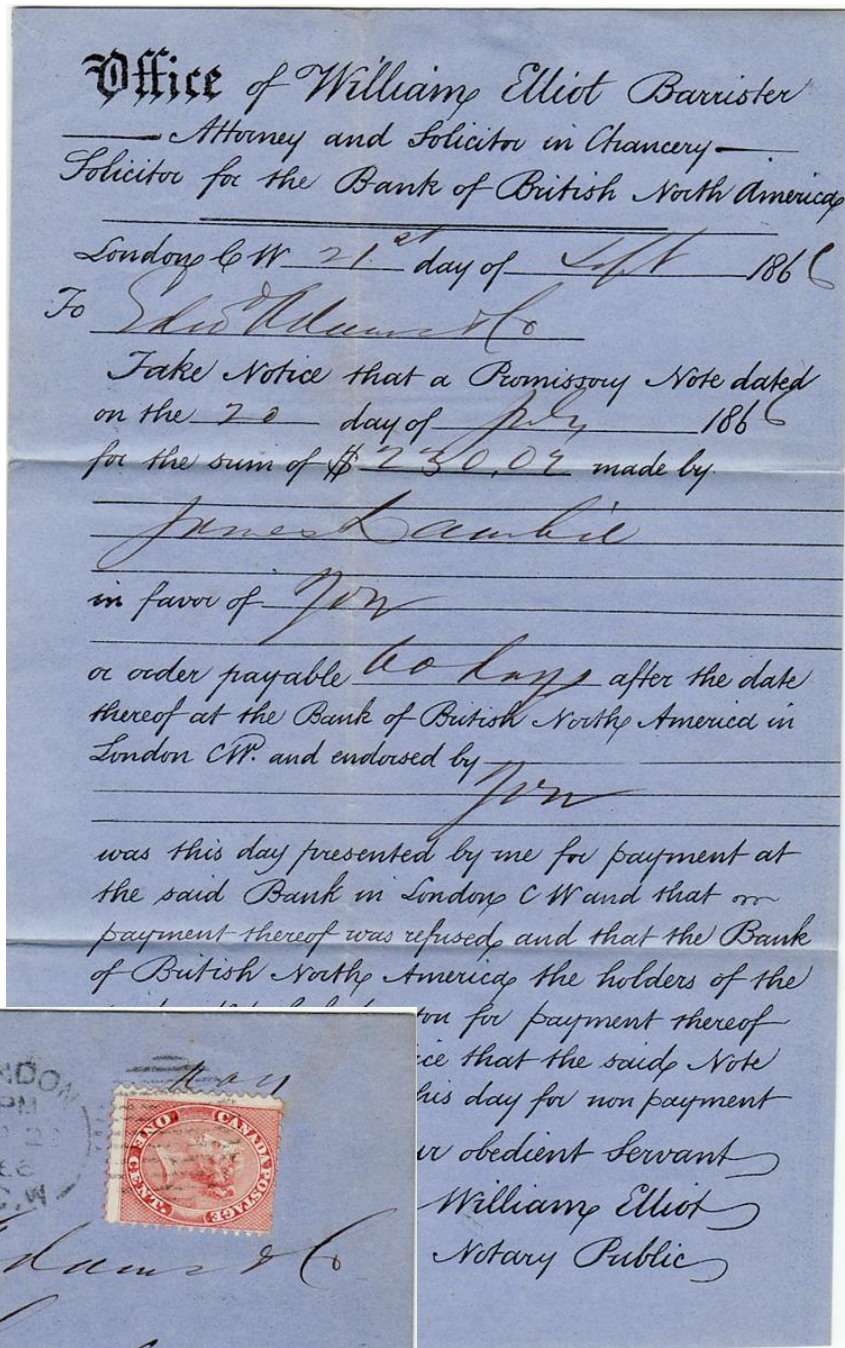 Office of William Elliot Barrister
Attorney and Solicitor in Chancery
Solicitor for the Bank of British North America
London C W 21st day of Sept 1866
To Edwd Adams & Co
Take Notice that a Promissory Note dated
on the 20 day of July 1866
for the sum of $ 230.02 made by
James Lambie
in favor of You
or order payable 60 days after the date
thereof at the Bank of British North America in
London CW. and endorsed by
You
was this day presented by me for payment at
the said Bank in London C W and that
payment thereof was refused and that the Bank
of British North America the holders of the
you for payment thereof
ice that the said Note
his day for non payment
ur obedient Servant
William Elliot
Notary Public
NDON
PM
66
C.W
CANADA POSTAGE
ONE CENT
dams & Co